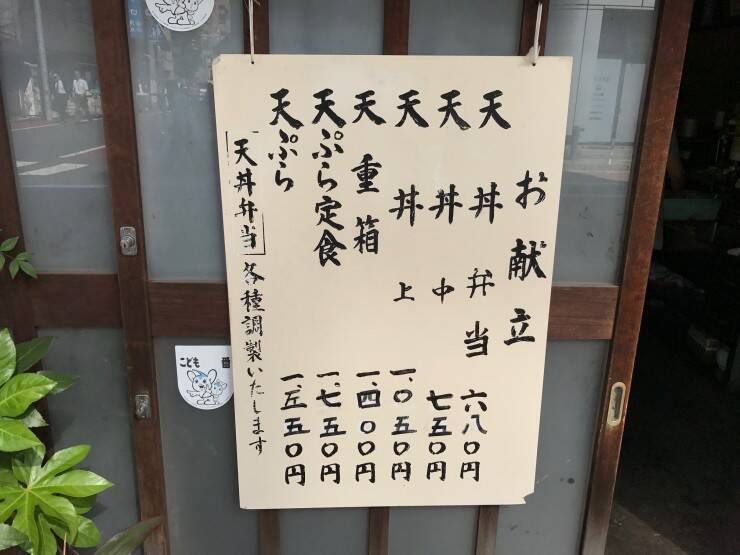 お献立
天丼弁当 六八〇円
天丼中 七五〇円
天丼上 一、〇五〇円
天重箱 一、四〇〇円
天ぷら定食 一、七五〇円
天ぷら 一、五五〇円
「天丼弁当」各種調製いたします
こども 番